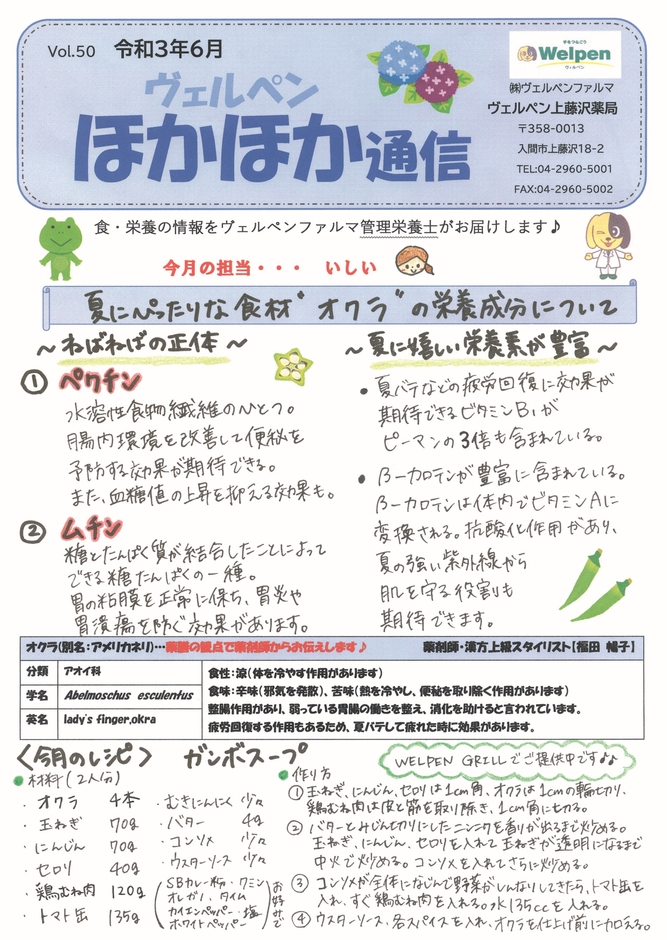 Vol.50 令和3年6月
ヴェルペン
ほかほか通信
手をつなごう
Welpen
ヴェルペン
㈱ヴェルペンファルマ
ヴェルペン上藤沢薬局
〒358-0013
入間市上藤沢18-2
TEL:04-2960-5001
FAX:04-2960-5002
食・栄養の情報をヴェルペンファルマ管理栄養士がお届けします♪
今月の担当・・・ いしい
夏にぴったりな食材"オクラ"の栄養成分について
～ねばねばの正体～
① ペクチン
水溶性食物繊維のひとつ。
腸内環境を改善して便秘を
予防する効果が期待できる。
また、血糖値の上昇を抑える効果も。
② ムチン
糖とたんぱく質が結合したことによって
できる糖たんぱくの一種。
胃の粘膜を正常に保ち、胃炎や
胃潰瘍を防ぐ効果があります。
～夏に嬉しい栄養素が豊富～
• 夏バテなどの疲労回復に効果が
期待できるビタミンB₁が
ピーマンの3倍も含まれている。
• β-カロテンが豊富に含まれている。
β-カロテンは体内でビタミンAに
変換される。抗酸化作用があり、
夏の強い紫外線から
肌を守る役割も
期待できます。
オクラ(別名:アメリカネリ)…薬膳の観点で薬剤師からお伝えします♪ 薬剤師・漢方上級スタイリスト【福田 暢子】
分類 アオイ科
学名 Abelmoschus esculentus
英名 lady's finger,okra
食性:涼(体を冷やす作用があります)
食味:辛味(邪気を発散)、苦味(熱を冷やし、便秘を取り除く作用があります)
整腸作用があり、弱っている胃腸の働きを整え、消化を助けると言われています。
疲労回復する作用もあるため、夏バテして疲れた時に効果があります。
〈今月のレシピ〉 ガンボスープ
WELPEN GRILLでご提供中です♪♪
材料(2人分)
・オクラ 4本
・玉ねぎ 70g
・にんじん 70g
・セロリ 40g
・鶏むね肉 120g
・トマト缶 135g
・むきにんにく 少々
・バター 4g
・コンソメ 少々
・ウスターソース 少々
(SBカレー粉・クミン
オレガノ・タイム
カイエンペッパー・塩
ホワイトペッパー)
お好みで
作り方
① 玉ねぎ、にんじん、セロリは1cm角、オクラは1cmの輪切り、
鶏むね肉は皮と筋を取り除き、1cm角に切る。
② バターとみじん切りにしたニンニクを香りが出るまで炒める。
玉ねぎ、にんじん、セロリを入れて玉ねぎが透明になるまで
中火で炒める。コンソメを入れてさらに炒める。
③ コンソメが全体になじんで野菜がしんなりしてきたら、トマト缶を
入れ、すぐ鶏むね肉を入れる。水135ccを入れる。
④ ウスターソース、各スパイスを入れ、オクラを仕上げ前に加える。